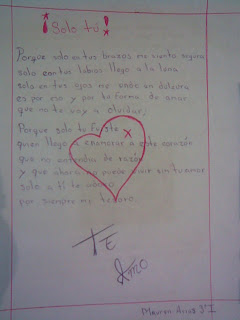 ¡Solo tú!
Porque solo en tus brazos me siento segura
solo con tus labios llego a la luna
solo en tus ojos me undo en dulzura
es por eso y por tu forma de amar
que no te voy a olvidar,
Porque solo tu fuiste
quien llego a enamorar a este corazón
que no entendia de razón
y que ahora no puede vivir sin tu amor
solo a ti te adoro
por siempre mi tesoro.
TE
AMO
Mauren Arias 3° I